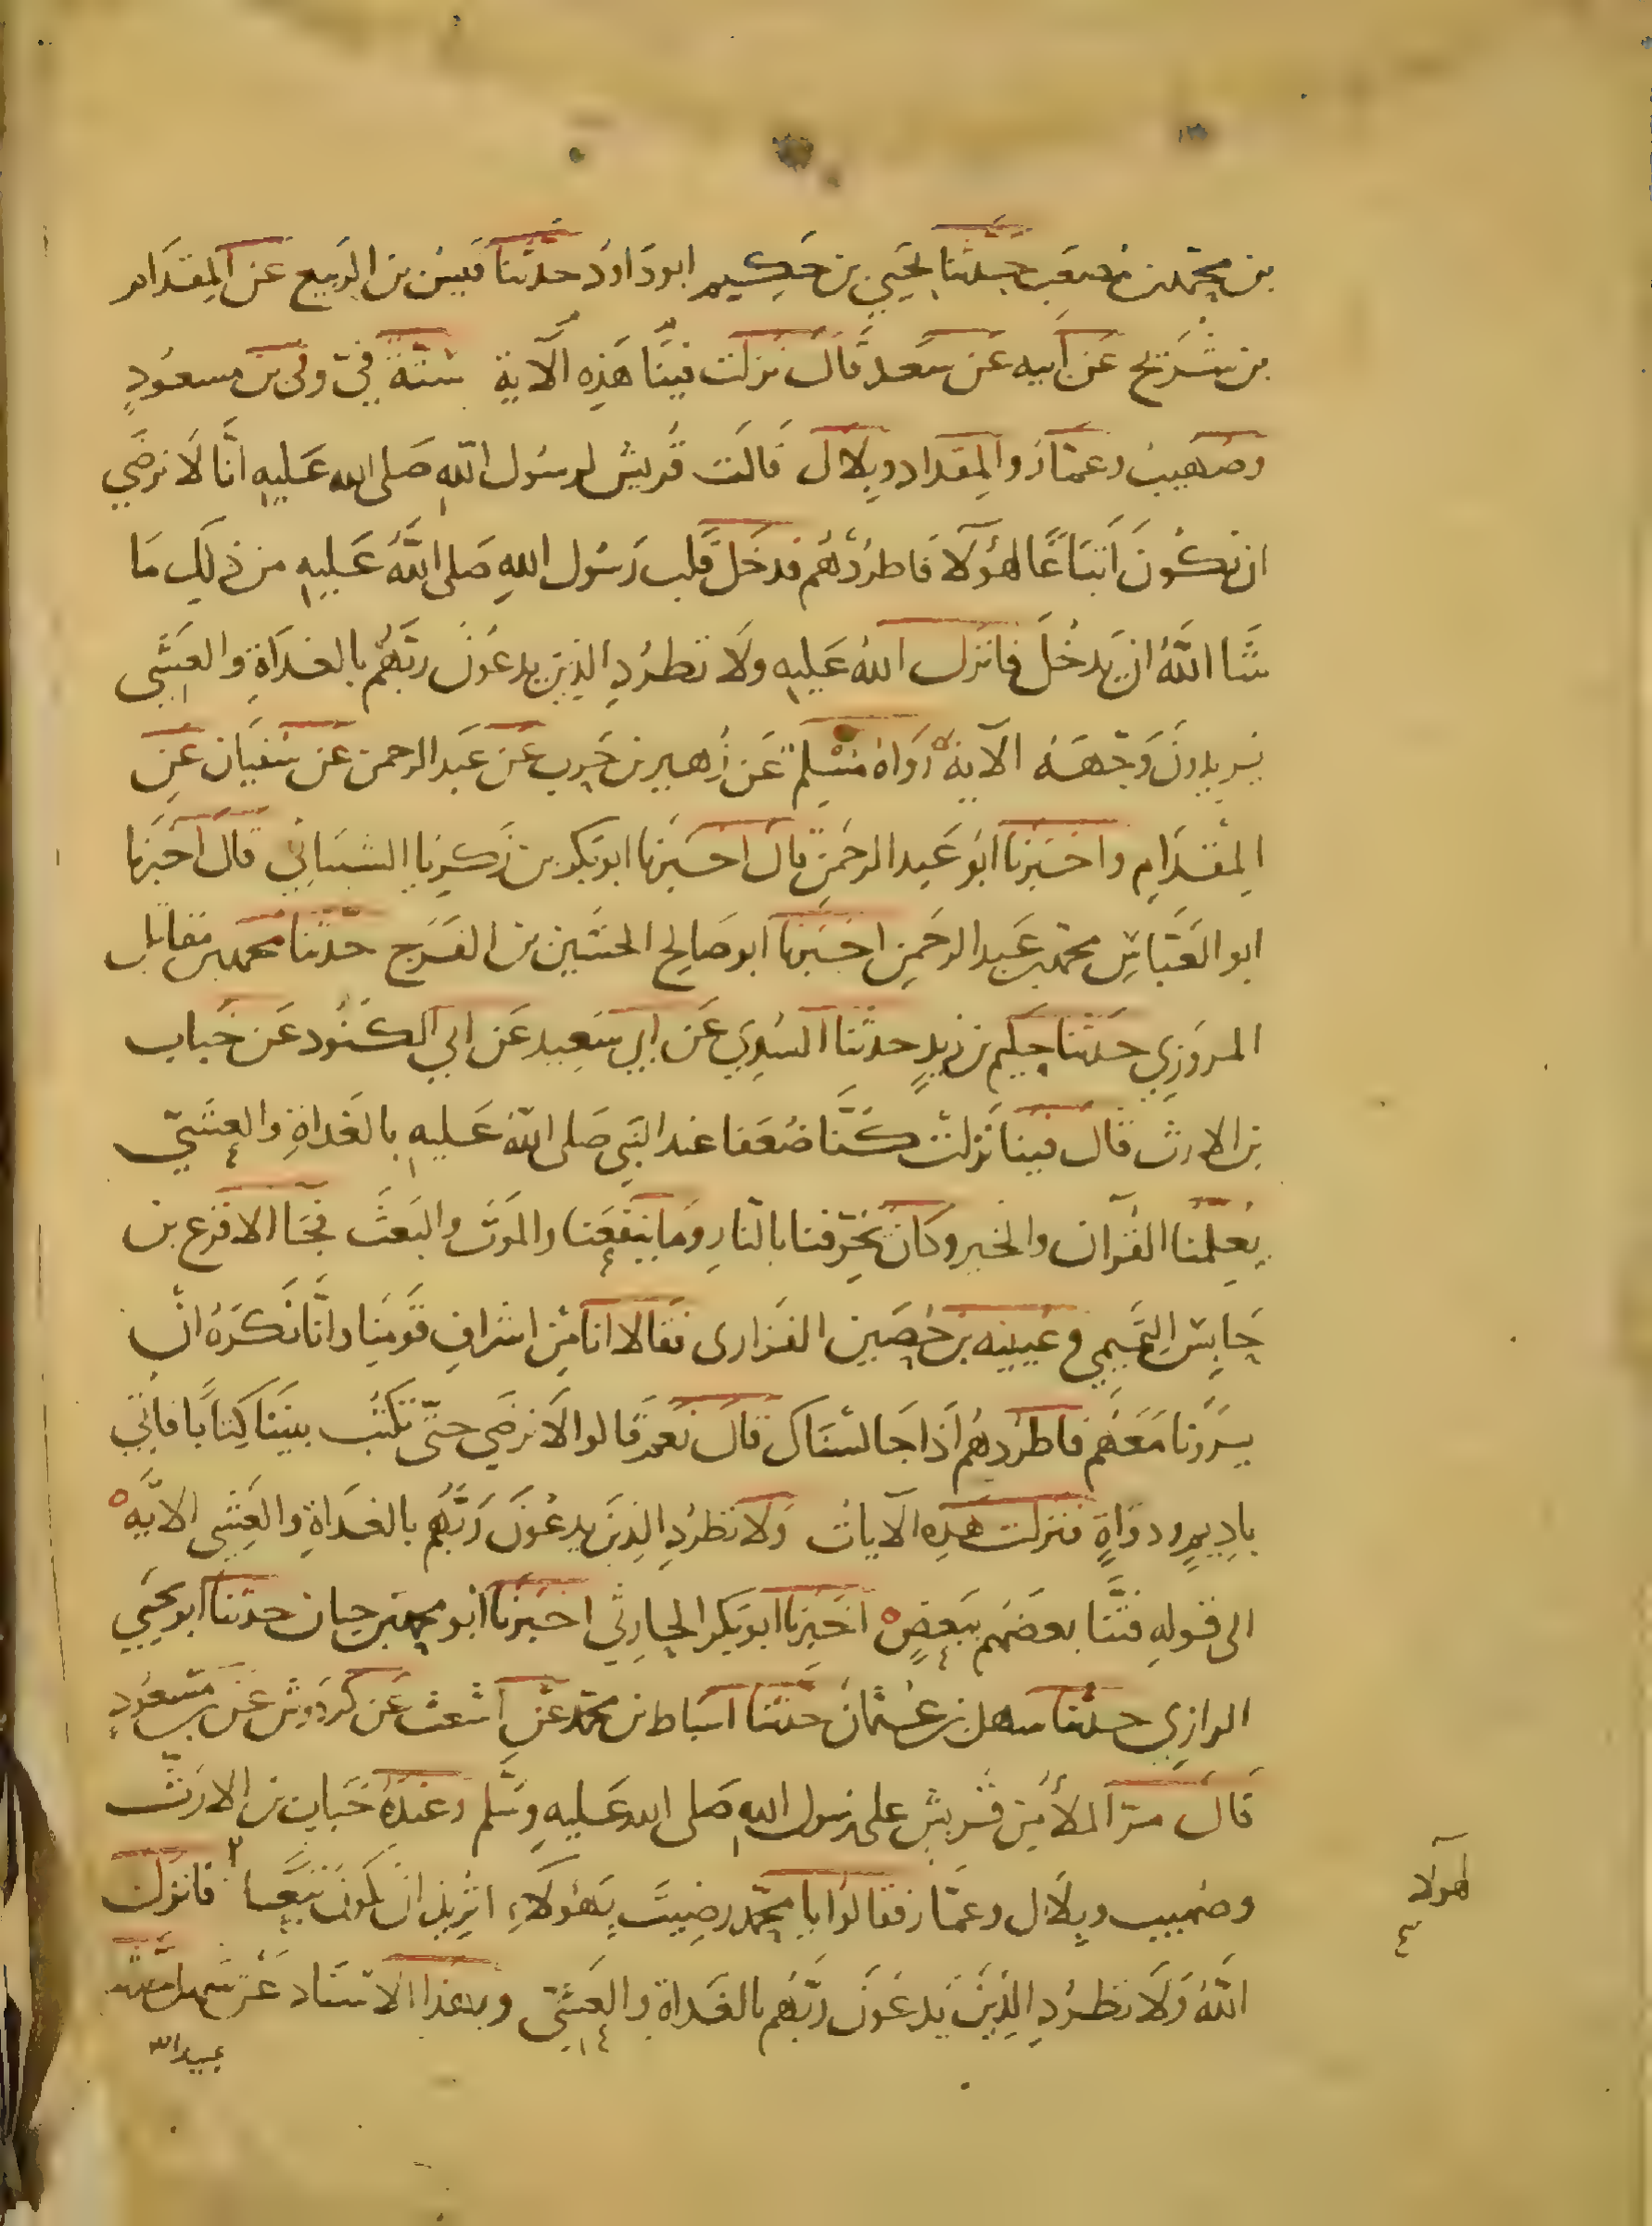 بن محمد بن مصعب حدثنا يحيى بن حكيم ابو داود حدثنا قيس بن الربيع عن المقدام
بن شريح عن ابيه عن سعد قال نزلت فينا هذه الآية ستة فيّ وفي بن مسعود
وصهيب وعمار والمقداد وبلال قالت قريش لرسول الله صلى الله عليه انا لا نرضى
ان نكون اتباعا لهؤلا فاطردهم فدخل قلب رسول الله صلى الله عليه من ذلك ما
شا الله ان يدخل فانزل الله عليه ولا تطرد الذين يدعون ربهم بالغداة والعشي
يريدون وجهه الآية رواه مسلم عن زهير بن حرب عن عبد الرحمن عن سفيان عن
المقدام واخبرنا ابو عبد الرحمن قال اخبرنا ابو بكر بن زكريا الشيباني قال اخبرنا
ابو العباس محمد بن عبد الرحمن اخبرنا ابو صالح الحسين بن الفرج حدثنا محمد بن مقاتل
المروزي حدثنا حكيم بن زيد حدثنا السدي عن ابي سعيد عن ابي الكنود عن خباب
بن الارت قال فينا نزلت كنا ضعفا عند النبي صلى الله عليه بالغداة والعشي
يعلمنا القرآن والخير وكان يخوفنا بالنار وما ينفعنا والموت والبعث فجا الاقرع بن
حابس التميمي وعيينه بن حصين الفزارى فقالا انا من اشراف قومنا وانا نكره ان
يرونا معهم فاطردهم اذا جالسناك قال نعم قالوا لا نرضى حتى تكتب بيننا كتابا فاتي
باديم ودواة فنزلت هذه الآيات ولا تطرد الذين يدعون ربهم بالغداة والعشي الايه
الى قوله فتنا بعضهم ببعض اخبرنا ابو بكر الحارثي اخبرنا ابو محمد بن حيان حدثنا ابو يحيى
الرازي حدثنا سهل بن عثمان حدثنا اسباط بن محمد عن اشعث عن كردوس عن بن مسعود
قال مر الملأ من قريش على رسول الله صلى الله عليه وسلم وعنده خباب بن الارت
وصهيب وبلال وعمار فقالوا يا محمد رضيت بهؤلاء اتريد ان نكون تبعا فانزل
لهولا
الله ولا تطرد الذين يدعون ربهم بالغداة والعشي وبهذا الاسناد عن
عبيد الله